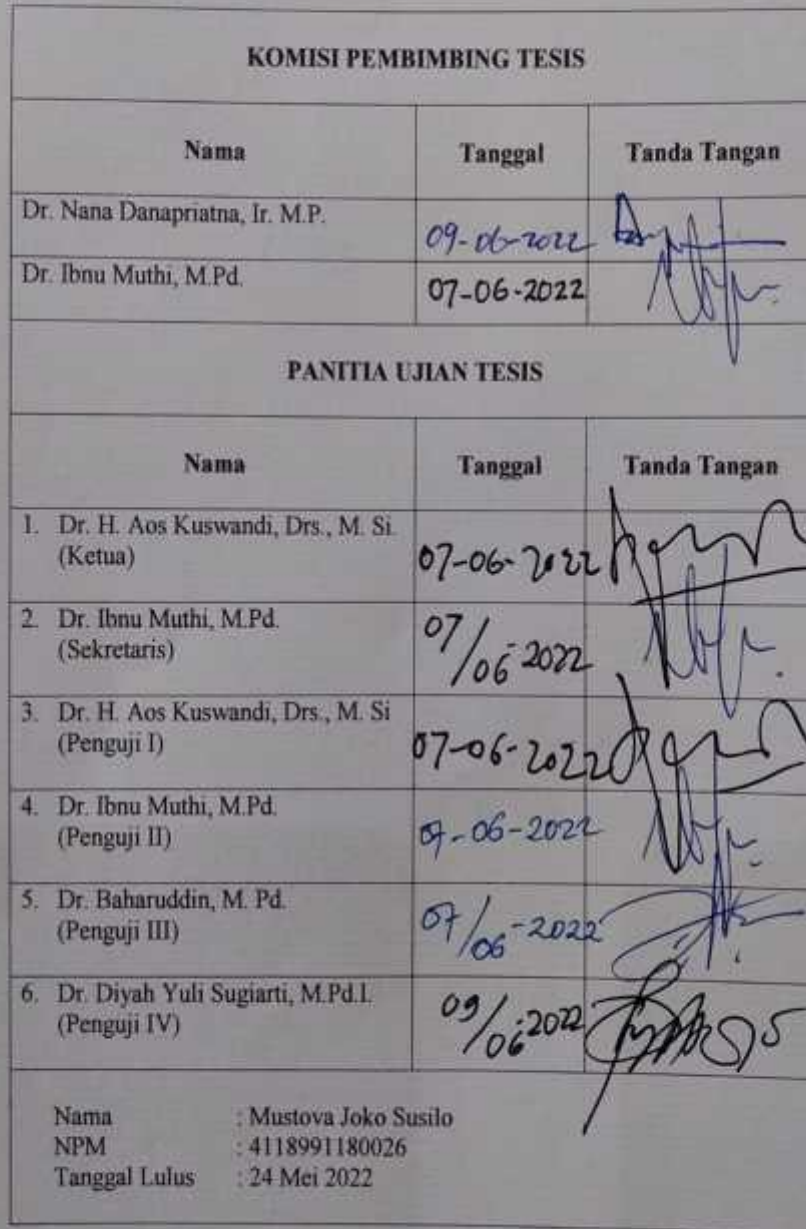 KOMISI PEMBIMBING TESIS
Nama Tanggal Tanda Tangan
Dr. Nana Danapriatna, Ir. M.P. 09-06-2022
Dr. Ibnu Muthi, M.Pd. 07-06-2022
PANITIA UJIAN TESIS
Nama Tanggal Tanda Tangan
1. Dr. H. Aos Kuswandi, Drs., M. Si.
(Ketua) 07-06-2022
2. Dr. Ibnu Muthi, M.Pd.
(Sekretaris) 07/06-2022
3. Dr. H. Aos Kuswandi, Drs., M. Si
(Penguji I) 07-06-2022
4. Dr. Ibnu Muthi, M.Pd.
(Penguji II) 07-06-2022
5. Dr. Baharuddin, M. Pd.
(Penguji III) 07/06-2022
6. Dr. Diyah Yuli Sugiarti, M.Pd.I.
(Penguji IV) 09/06-2022
Nama : Mustova Joko Susilo
NPM : 4118991180026
Tanggal Lulus : 24 Mei 2022